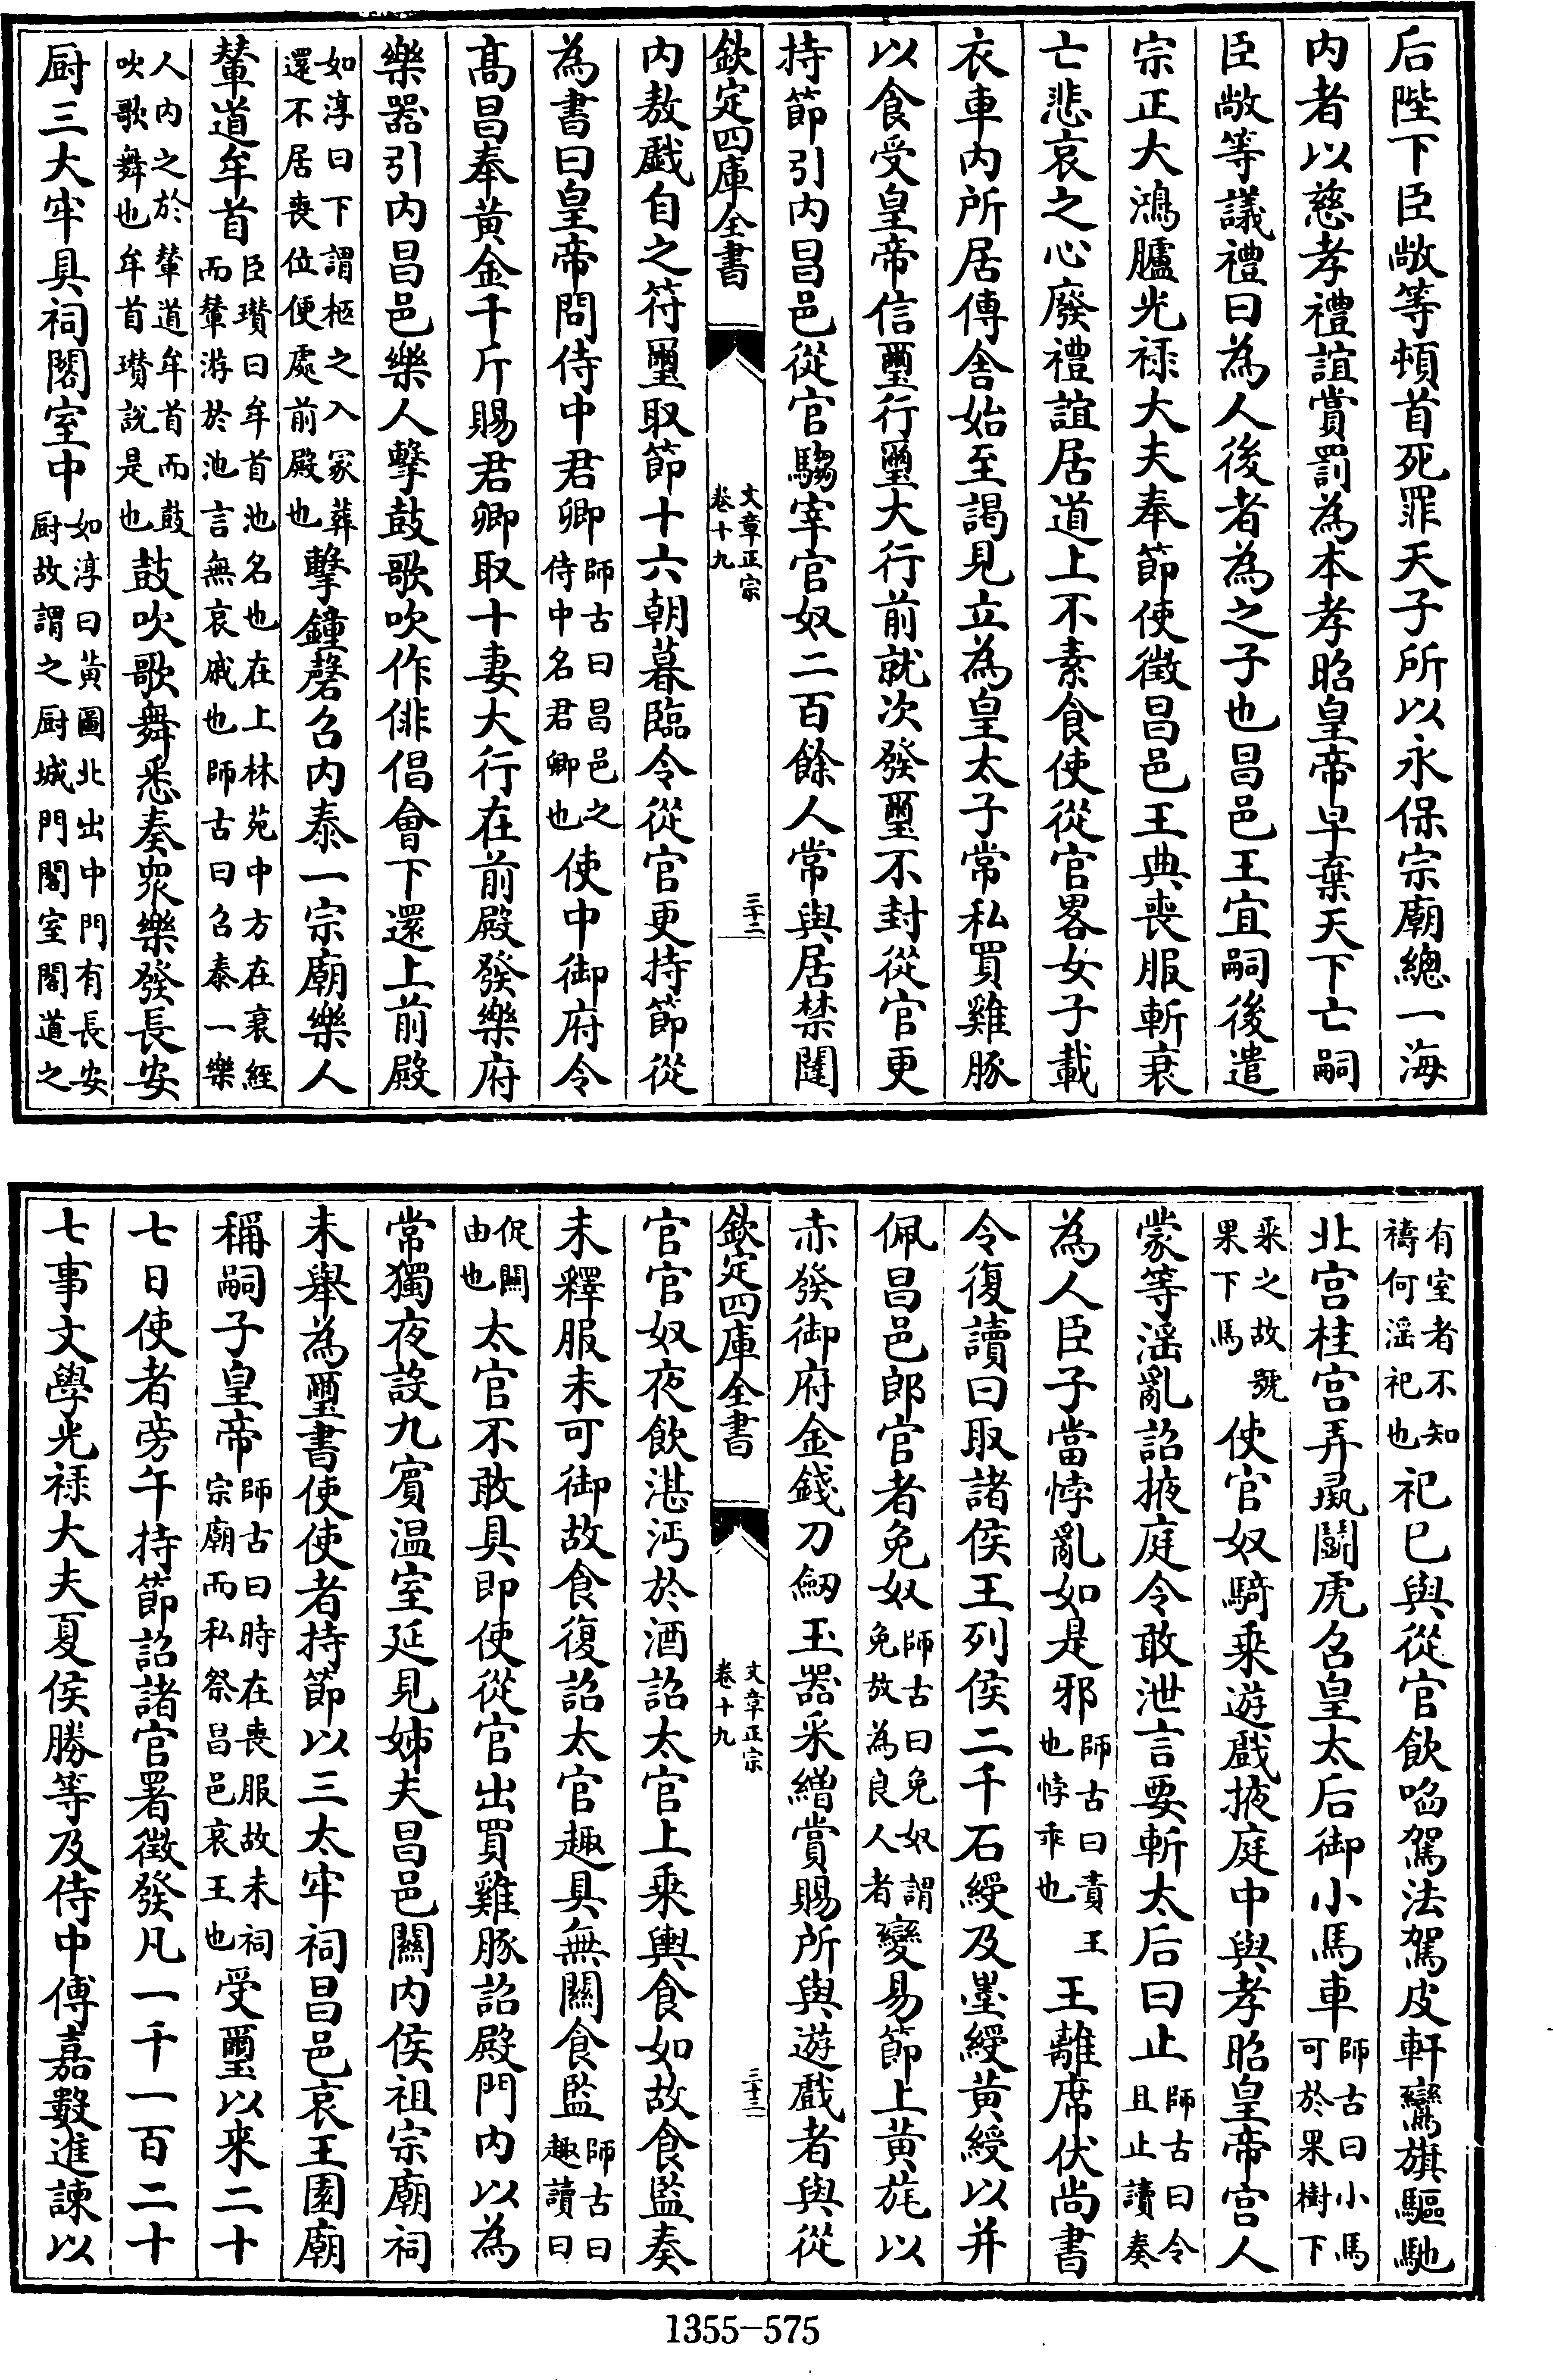 后陛下臣敞等頓首死罪天子所以永保宗廟總一海
内者以慈孝禮誼賞罰為本孝昭皇帝早棄天下亡嗣
臣敞等議禮曰為人後者為之子也昌邑王宜嗣後遣
宗正大鴻臚光禄大夫奉節使徵昌邑王典喪服斬衰
亡悲哀之心廢禮誼居道上不素食使從官畧女子載
衣車内所居傳舍始至謁見立為皇太子常私買雞豚
以食受皇帝信璽行璽大行前就次發璽不封從官更
持節引内昌邑從官騶宰官奴二百餘人常與居禁闥
欽定四庫全書
文章正宗
卷十九
三十二
内敖戲自之符璽取節十六朝暮臨令從官更持節從
為書曰皇帝問侍中君卿師古曰昌邑之侍中名君卿也使中御府令
髙昌奉黄金千斤賜君卿取十妻大行在前殿發樂府
樂器引内昌邑樂人擊鼓歌吹作俳倡會下還上前殿
如淳曰下謂柩之入冢葬還不居喪位便處前殿也擊鐘磬召内泰一宗廟樂人
輦道牟首臣瓉曰牟首池名也在上林苑中方在衰絰而輦游於池言無哀戚也師古曰召泰一樂
人内之於輦道牟首而鼓吹歌舞也牟首瓉說是也鼓吹歌舞悉奏衆樂發長安
厨三大牢具祠閣室中如淳曰黄圖北出中門有長安厨故謂之厨城門閣室閣道之
有室者不知禱何滛祀也祀已與從官飲啗駕法駕皮軒鸞旗驅馳
北宫桂宫弄彘鬭虎召皇太后御小馬車師古曰小馬可於果樹下
乘之故號果下馬使官奴騎乘遊戲掖庭中與孝昭皇帝宫人
蒙等滛亂詔掖庭令敢泄言要斬太后曰止師古曰令且止讀奏
為人臣子當悖亂如是邪師古曰責王也悖乖也王離席伏尚書
令復讀曰取諸侯王列侯二千石綬及墨綬黄綬以并
佩昌邑郎官者免奴師古曰免奴謂免放為良人者變易節上黄旄以
赤發御府金錢刀劒玉器采繒賞賜所與遊戲者與從
欽定四庫全書
文章正宗
卷十九
三十三
官官奴夜飲湛沔於酒詔太官上乘輿食如故食監奏
未釋服未可御故食復詔太官趣具無關食監師古曰趣讀曰
促關由也太官不敢具即使從官出買雞豚詔殿門内以為
常獨夜設九賓温室延見姊夫昌邑關内侯祖宗廟祠
未舉為璽書使使者持節以三太牢祠昌邑哀王園廟
稱嗣子皇帝師古曰時在喪服故未祠宗廟而私祭昌邑哀王也受璽以来二十
七日使者旁午持節詔諸官署徵發凡一千一百二十
七事文學光禄大夫夏侯勝等及侍中傅嘉數進諫以
1355-575